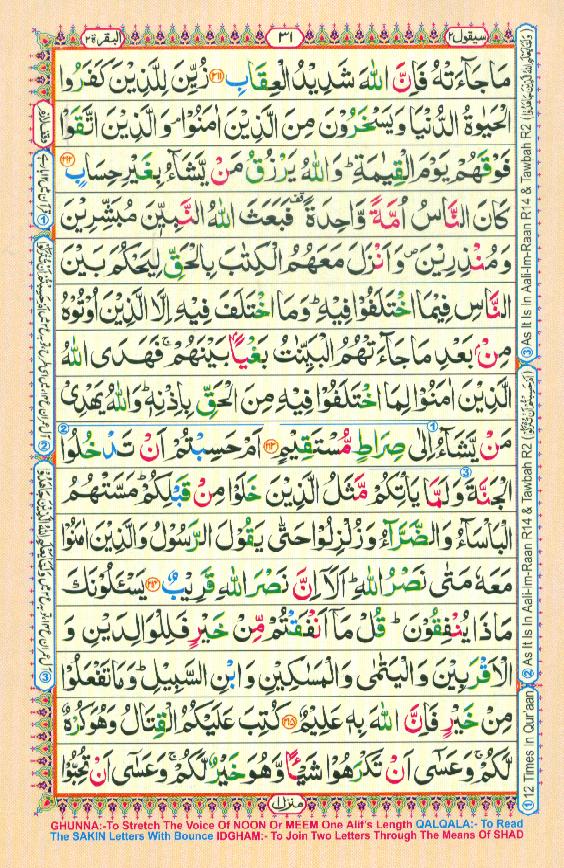 سيقول ٢
٣١
البقرة ٢
مَا جَآءَتْهُ فَاِنَّ اللّٰهَ شَدِيْدُ الْعِقَابِ ﴿٢١١﴾ زُيِّنَ لِلَّذِيْنَ كَفَرُوا
الْحَيٰوةُ الدُّنْيَا وَيَسْخَرُوْنَ مِنَ الَّذِيْنَ اٰمَنُوْا ۘ وَالَّذِيْنَ اتَّقَوْا
فَوْقَهُمْ يَوْمَ الْقِيٰمَةِ ؕ وَاللّٰهُ يَرْزُقُ مَنْ يَّشَآءُ بِغَيْرِ حِسَابٍ ﴿٢١٢﴾
كَانَ النَّاسُ اُمَّةً وَّاحِدَةً ۫ فَبَعَثَ اللّٰهُ النَّبِيّٖنَ مُبَشِّرِيْنَ
وَمُنْذِرِيْنَ ۪ وَاَنْزَلَ مَعَهُمُ الْكِتٰبَ بِالْحَقِّ لِيَحْكُمَ بَيْنَ
النَّاسِ فِيْمَا اخْتَلَفُوْا فِيْهِ ؕ وَمَا اخْتَلَفَ فِيْهِ اِلَّا الَّذِيْنَ اُوْتُوْهُ
مِنْۢ بَعْدِ مَا جَآءَتْهُمُ الْبَيِّنٰتُ بَغْيًاۢ بَيْنَهُمْ ۚ فَهَدَى اللّٰهُ
الَّذِيْنَ اٰمَنُوْا لِمَا اخْتَلَفُوْا فِيْهِ مِنَ الْحَقِّ بِاِذْنِهٖ ؕ وَاللّٰهُ يَهْدِيْ
مَنْ يَّشَآءُ اِلٰى صِرَاطٍ مُّسْتَقِيْمٍ ﴿٢١٣﴾ اَمْ حَسِبْتُمْ اَنْ تَدْخُلُوا
الْجَنَّةَ وَلَمَّا يَاْتِكُمْ مَّثَلُ الَّذِيْنَ خَلَوْا مِنْ قَبْلِكُمْ ؕ مَسَّتْهُمُ
الْبَاْسَآءُ وَالضَّرَّآءُ وَزُلْزِلُوْا حَتّٰى يَقُوْلَ الرَّسُوْلُ وَالَّذِيْنَ اٰمَنُوْا
مَعَهٗ مَتٰى نَصْرُ اللّٰهِ ؕ اَلَاۤ اِنَّ نَصْرَ اللّٰهِ قَرِيْبٌ ﴿٢١٤﴾ يَسْـَٔلُوْنَكَ
مَاذَا يُنْفِقُوْنَ ؕ قُلْ مَاۤ اَنْفَقْتُمْ مِّنْ خَيْرٍ فَلِلْوَالِدَيْنِ وَ
الْاَقْرَبِيْنَ وَالْيَتٰمٰى وَالْمَسٰكِيْنِ وَابْنِ السَّبِيْلِ ؕ وَمَا تَفْعَلُوْا
مِنْ خَيْرٍ فَاِنَّ اللّٰهَ بِهٖ عَلِيْمٌ ﴿٢١٥﴾ كُتِبَ عَلَيْكُمُ الْقِتَالُ وَهُوَ كُرْهٌ
لَّكُمْ ۚ وَعَسٰۤى اَنْ تَكْرَهُوْا شَيْـًٔا وَّهُوَ خَيْرٌ لَّكُمْ ۚ وَعَسٰۤى اَنْ تُحِبُّوْا
منزل
③ As It Is In Aali-Im-Raan R14 & Tawbah R2
② As It Is In Aali-Im-Raan R14 & Tawbah R2
① 12 Times In Quraan
GHUNNA:-To Stretch The Voice Of NOON Or MEEM One Alif's Length QALQALA:- To Read
The SAKIN Letters With Bounce IDGHAM:- To Join Two Letters Through The Means Of SHAD